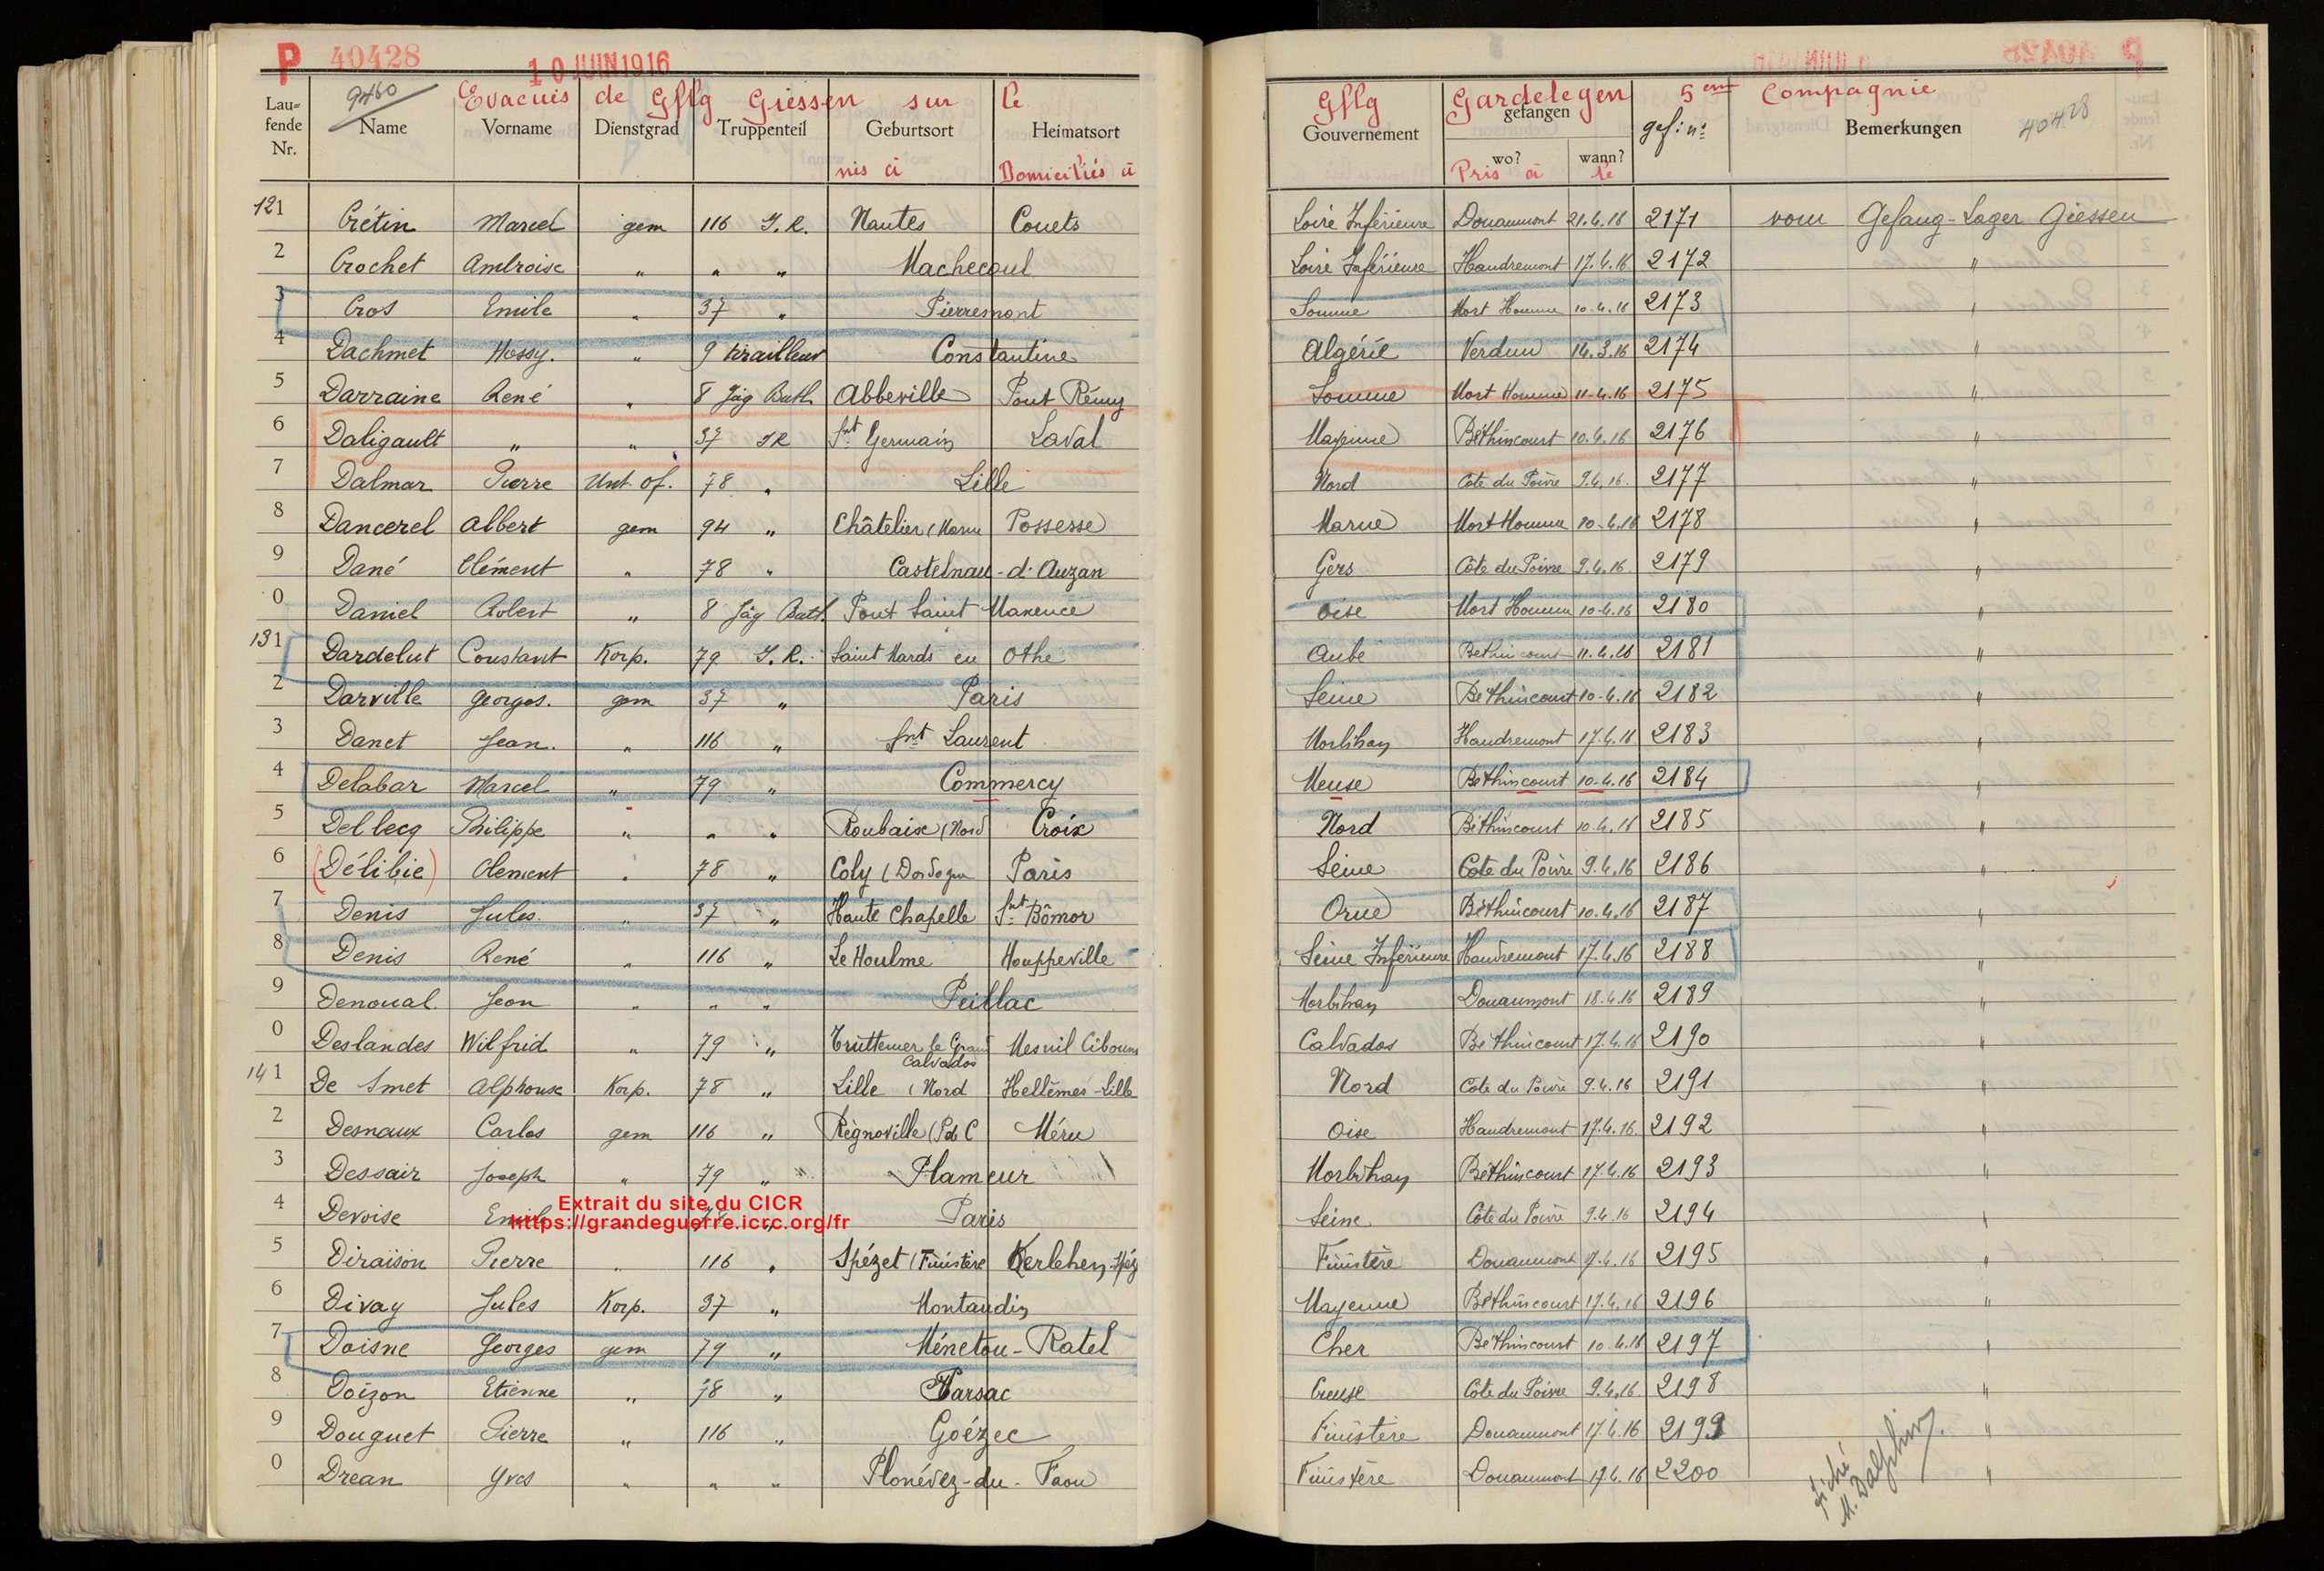 P 40428
10 JUIN 1916
9460 Evacuis de Gflg Giessen sur le Gflg Gardelegen 5em Compagnie
Laufende Nr. Name Vorname Dienstgrad Truppenteil Geburtsort Heimatsort Gouvernement gefangen gef: n° Bemerkungen 40428
nis à Domiciliés à wo? Pris à wann? le
121 Crétin Marcel gem 116 J. R. Nantes Couets Loire Inférieure Douaumont 21.4.16 2171 vom Gefang-Lager Giessen
2 Crochet Ambroise " " " Machecoul Loire Inférieure Haudremont 17.4.16 2172 "
3 Cros Emile " 37 " Pierremont Somme Mort Homme 10.4.16 2173 "
4 Dachmet Hossy. " 9 tirailleur Constantine Algérie Verdun 14.3.16 2174 "
5 Darraine René " 8 Jäg Batl. Abbeville Pont Rémy Somme Mort Homme 11.4.16 2175 "
6 Daligault " " 37 JR Snt Germain Laval Mayenne Béthincourt 10.4.16 2176 "
7 Dalmar Pierre Unt. of. 78 " Lille Nord Côte du Poivre 9.4.16. 2177 "
8 Dancerel Albert gem 94 " Châtelier (Marne Possesse Marne Mort Homme 10.4.16 2178 "
9 Dané Clément " 78 " Castelnau-d'Auzan Gers Côte du Poivre 9.4.16. 2179 "
0 Daniel Robert " 8 Jäg Batl. Pont Saint Maxence Oise Mort Homme 10.4.16 2180 "
131 Dardelut Constant Korp. 79 J. R. Saint Mards en Othe Aube Bethincourt 11.4.16 2181 "
2 Darville Georges. gem 37 " Paris Seine Béthincourt 10.4.16 2182 "
3 Danet Jean. " 116 " Snt Laurent Morbihan Haudremont 17.4.16 2183 "
4 Delabar Marcel " 79 " Commercy Meuse Bethincourt 10.4.16 2184 "
5 Dellecq Philippe " " " Roubaix (Nord Croix Nord Béthincourt 10.4.16 2185 "
6 (Délibie) Clement " 78 " Coly (Dordogne Paris Seine Cote du Poivre 9.4.16 2186 "
7 Denis Jules. " 37 " Haute Chapelle Snt Bômer Orne Béthincourt 10.4.16 2187 "
8 Denis René " 116 " Le Houlme Houppeville Seine Inférieure Haudremont 17.4.16 2188 "
9 Denoual. Jean " " " Peillac Morbihan Douaumont 18.4.16 2189 "
0 Deslandes Wilfrid " 79 " Truttemer le Grand Calvados Mesnil Ciboum Calvados Béthincourt 17.4.16 2190 "
141 De Smet Alphonse Korp. 78 " Lille (Nord Hellêmes-Lille Nord Cote du Poivre 9.4.16 2191 "
2 Desnaux Carlos gem 116 " Rignoville (P.d.C Méru Oise Haudremont 17.4.16. 2192 "
3 Dessair Joseph " 79 " Plameur Morbihan Béthincourt 17.4.16 2193 "
4 Devoise Emile " 78 " Paris Seine Côte du Poivre 9.4.16 2194 "
Extrait du site du CICR
https://grandeguerre.icrc.org/fr
5 Diraison Pierre " 116 " Spézet (Finistère Kerlehen-Spéz Finistère Douaumont 17.4.16 2195 "
6 Divay Jules Korp. 37 " Montaudin Mayenne Béthincourt 17.4.16 2196 "
7 Doisne Georges gem 79 " Ménetou-Ratel Cher Bethincourt 10.4.16 2197 "
8 Doizon Etienne " 78 " Marsac Creuse Côte du Poivre 9.4.16. 2198 "
9 Douguet Pierre " 116 " Goézec Finistère Douaumont 17.4.16 2199 "
0 Drean Yves " " " Plonévez-du-Faou Finistère Douaumont 17.4.16 2200 "
Fiché M. Dalphin.